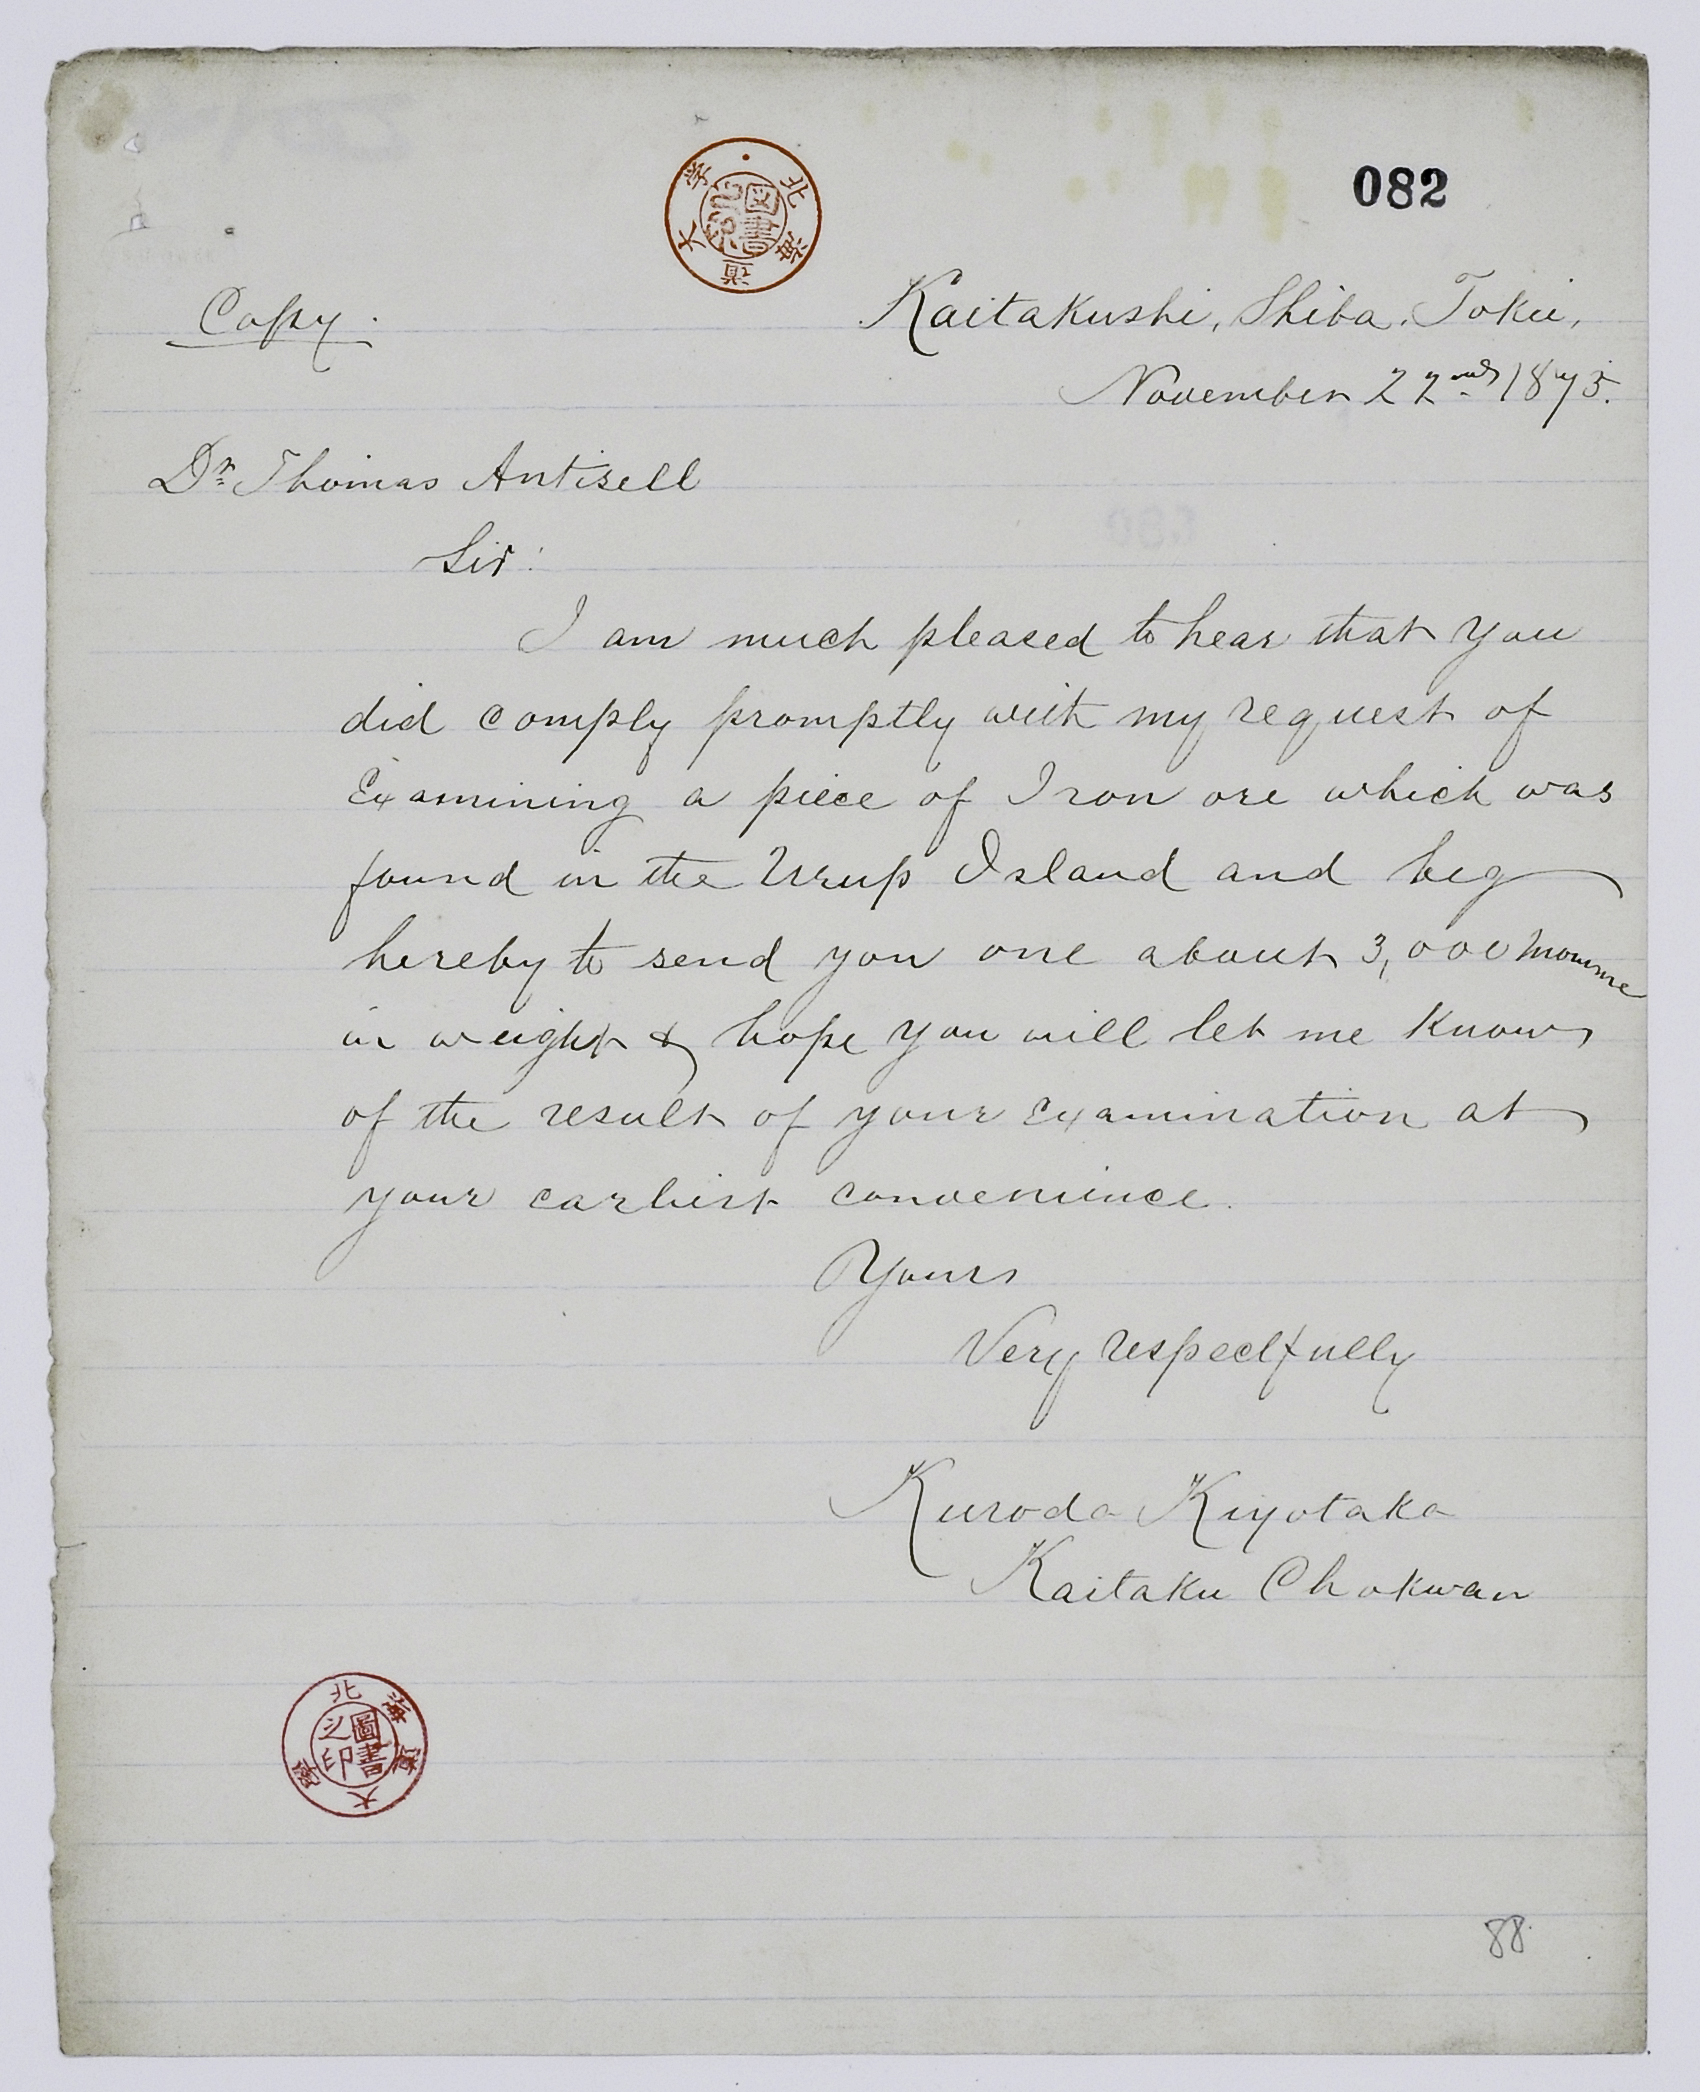 082
北海道大学
図書
Copy.
Kaitakushi, Shiba, Tokei,
November 22nd 1875.
Dr Thomas Antisell
Sir:
I am much pleased to hear that you
did comply promptly with my request of
Examining a piece of Iron ore which was
found in the Urup Island and beg
hereby to send you one about 3,000 momme
in weight & hope you will let me know
of the result of your Examination at
your earliest convenience.
Yours
Very respectfully
Kuroda Kiyotaka
Kaitaku Chokwan
北海道大學
圖書之印
88